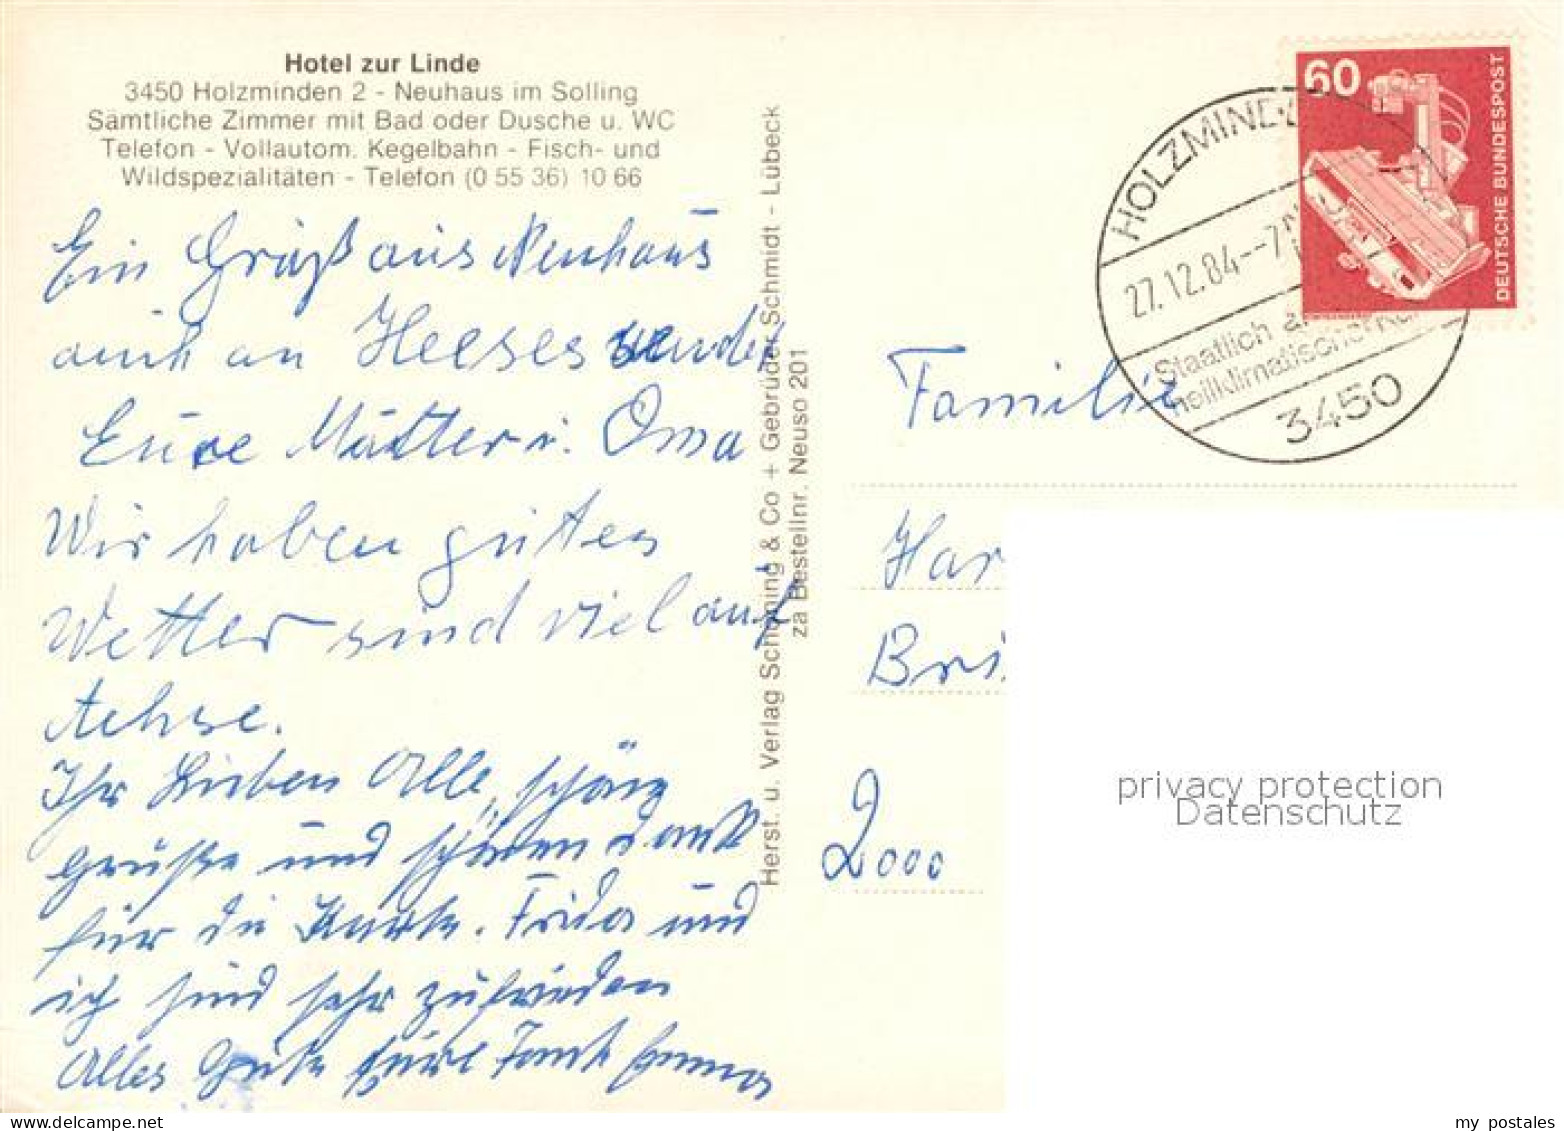 Hotel zur Linde
3450 Holzminden 2 - Neuhaus im Solling
Sämtliche Zimmer mit Bad oder Dusche u. WC
Telefon - Vollautom. Kegelbahn - Fisch- und
Wildspezialitäten - Telefon (0 55 36) 10 66
Ein Gruß aus Neuhaus
auch an Heeses sendet
Eure Mutter u. Oma
Wir haben gutes
Wetter sind viel auf
Achse.
Ihr Lieben Alle, schöne
Grüße und schönen Dank
für die Karte. Frida und
ich sind sehr zufrieden
Alles Gute Eure Tante Emma
Herst. u. Verlag Schöning & Co + Gebrüder Schmidt - Lübeck
za Bestellnr. Neuso 201
60
DEUTSCHE BUNDESPOST
HOLZMINDEN
27.12.84--7
Staatlich
heilklimatischer
3450
Familie
Har
Bri
2000
privacy protection
Datenschutz
my postales